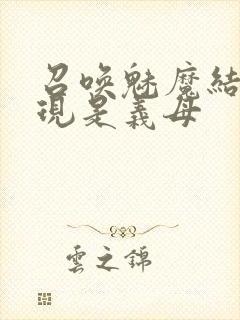 召喚魅魔結
現是義母
雲之錦